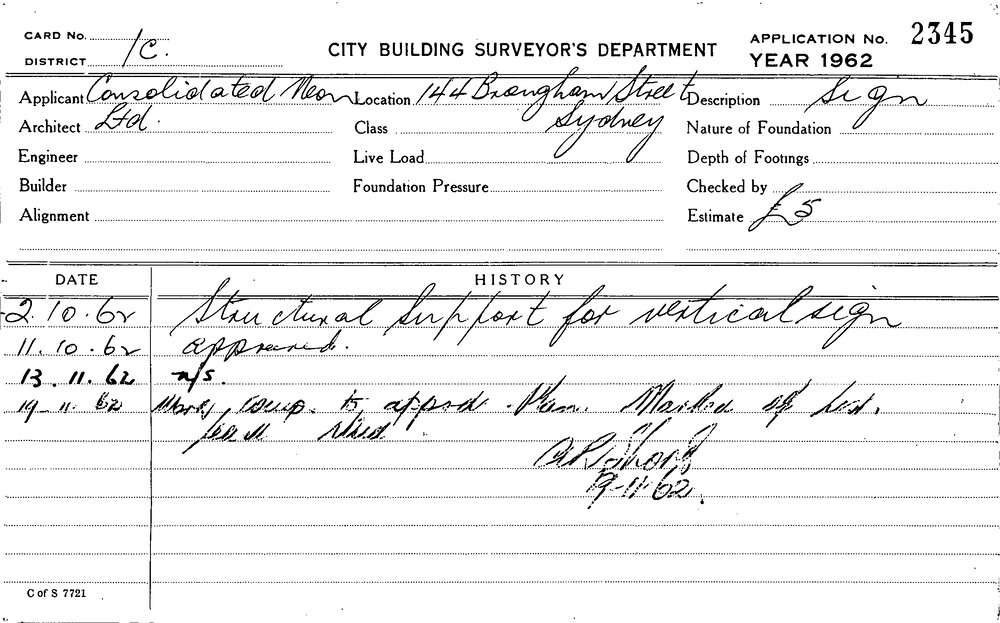 CARD No.
DISTRICT 1C.
CITY BUILDING SURVEYOR'S DEPARTMENT
APPLICATION No. 2345
YEAR 1962
Applicant Consolidated Neon Location 144 Brougham Street Description Sign
Architect Ltd. Class Sydney Nature of Foundation
Engineer Live Load Depth of Footings
Builder Foundation Pressure Checked by
Alignment Estimate £5
DATE HISTORY
2.10.62 Structural Support for vertical sign
11.10.62 approved.
13.11.62 n/s.
19-11-62 comp. to appvd Plan. Marked off
19-11-62.
C of S 7721